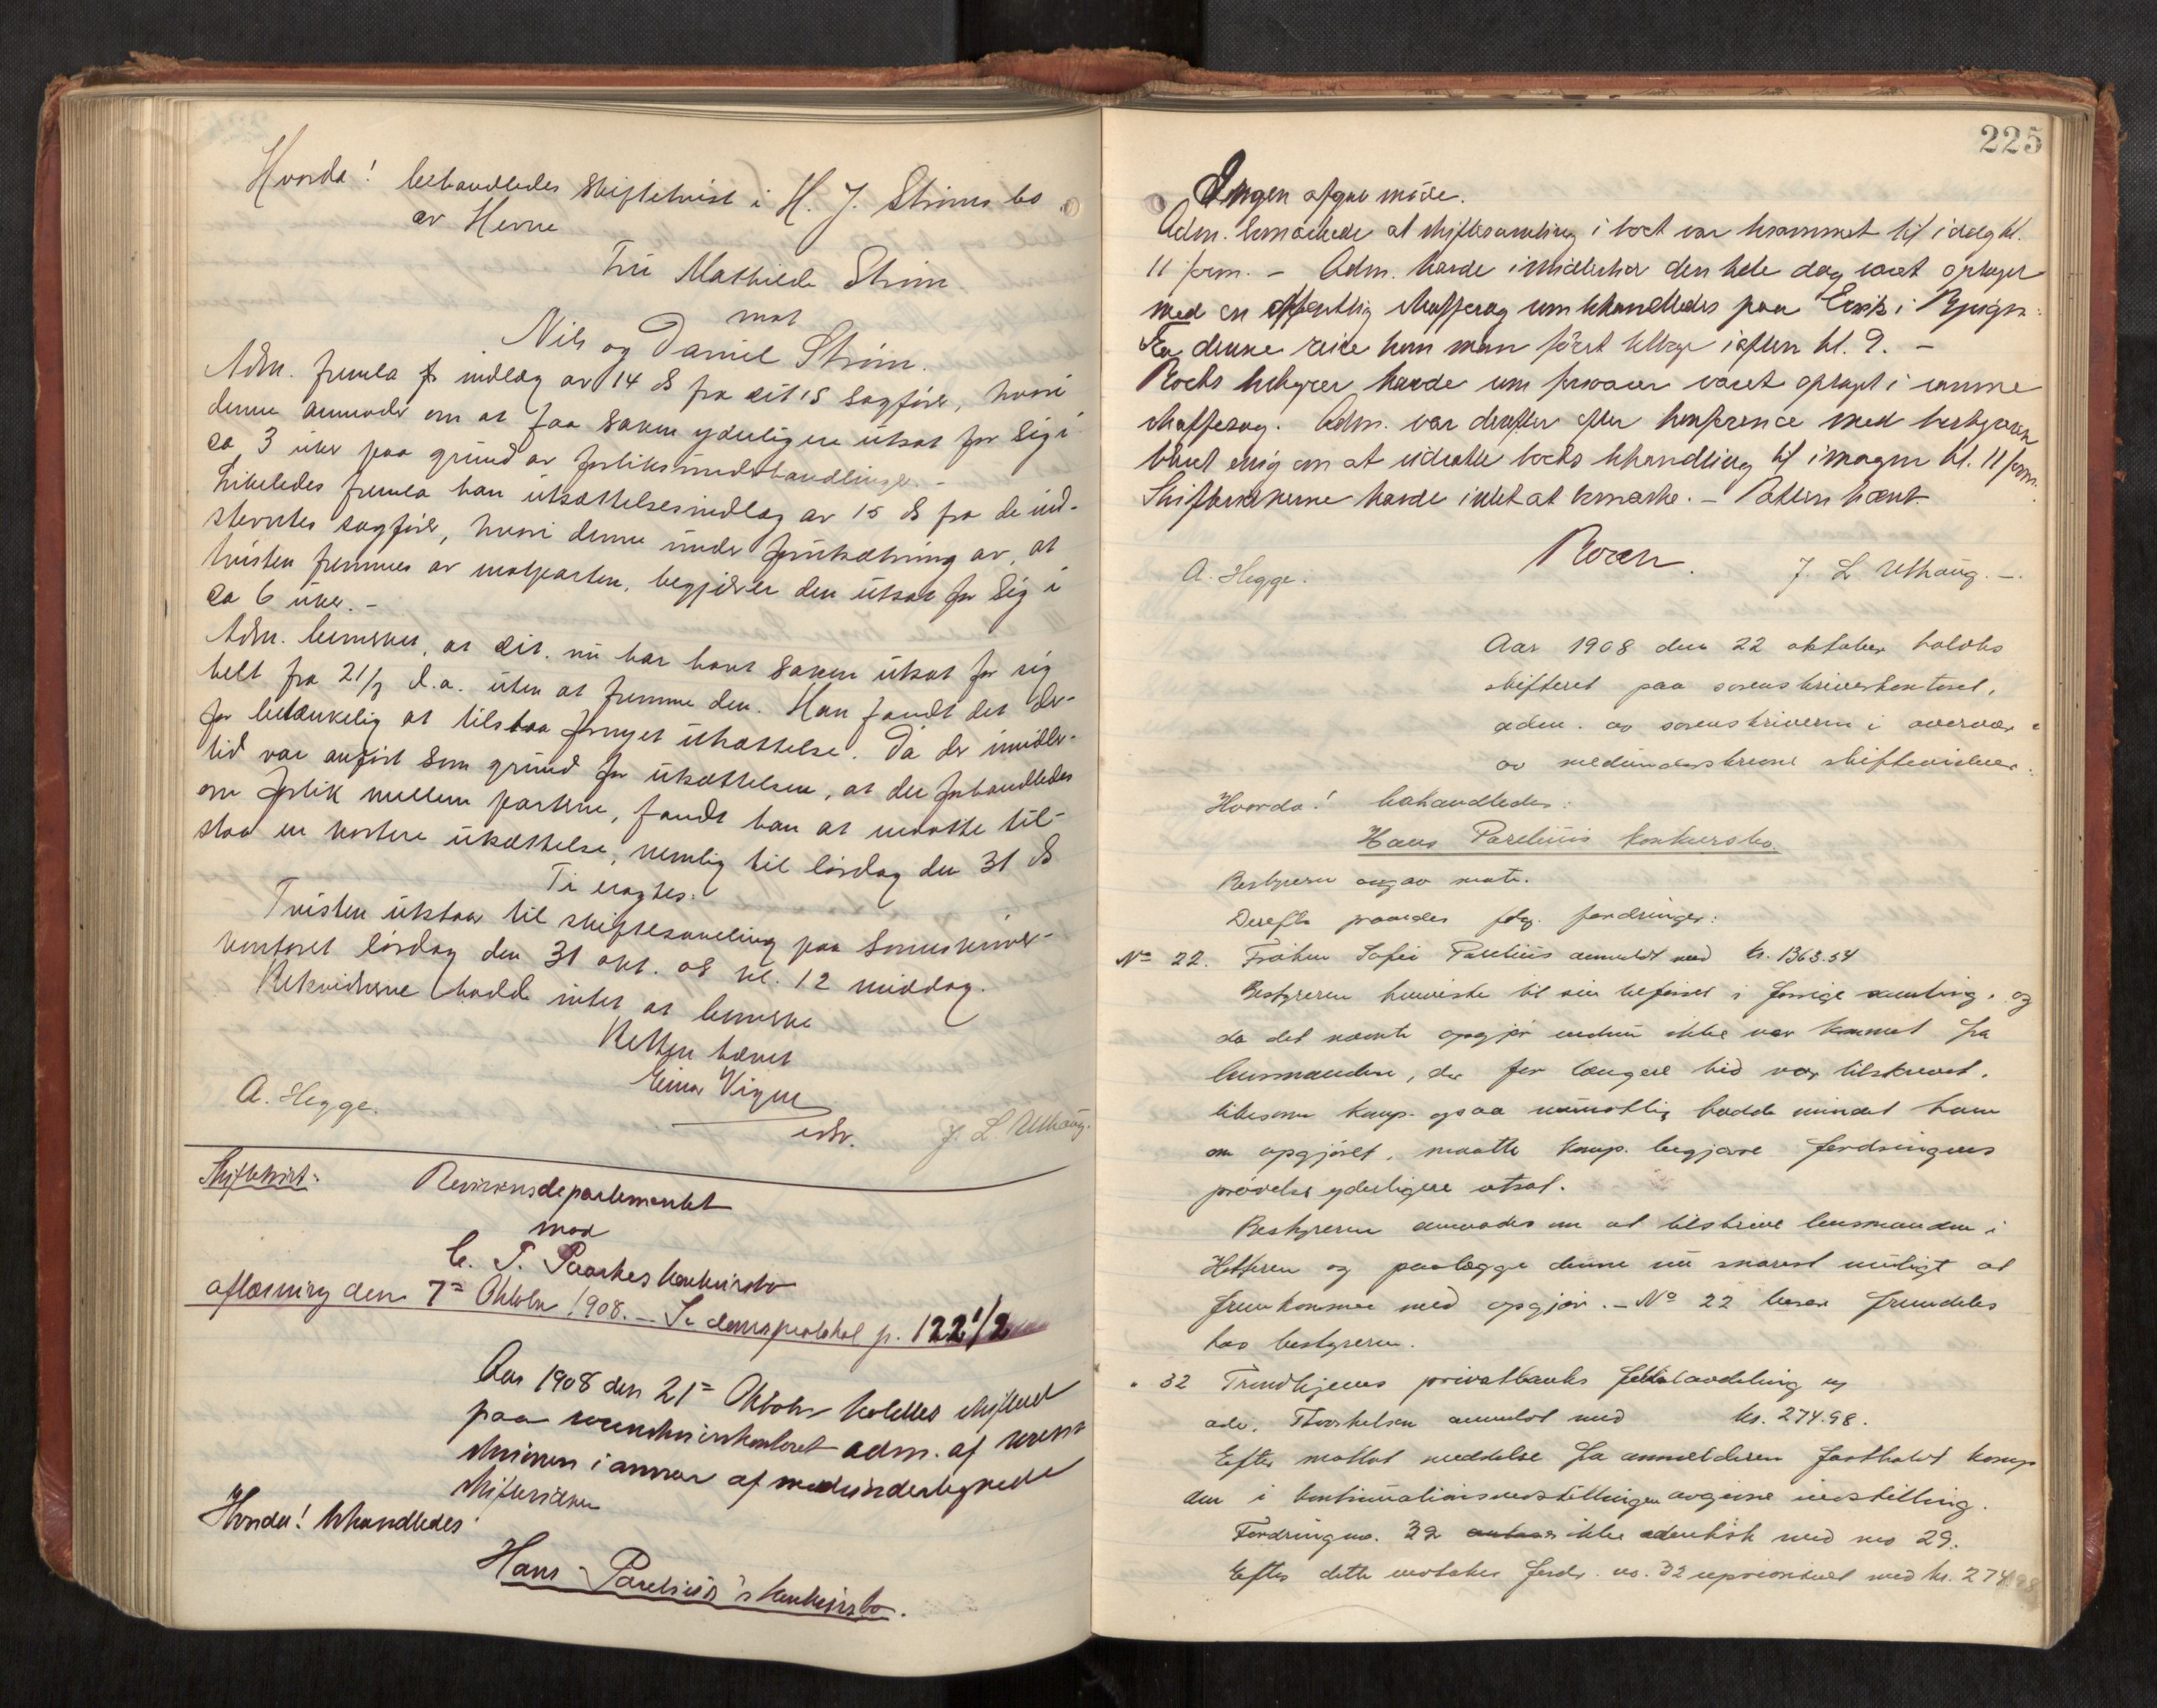 Hvorda! behandledes skiftetvist i H. J. Strøms bo
av Hevne
Fru Mathilde Strøm
mot
Nils og Daniel Strøm.
Adm. fremla indlæg av 14 ds fra cit.s sagfører, hvori
denne anmoder om at faa saken yderligere utsat for sig i
ca 3 uker paa grund av forliksunderhandlinger. -
Likeledes fremla han utsættelsesindlæg av 15 ds fra de ind-
stevntes sagfører, hvori denne under forutsætning av, at
tvisten fremmes av motparten, begjærer den utsat for sig i
ca 6 uker. -
Adm. bemerket, at cit. nu har havt saken utsat for sig
helt fra 21/7 d.a. uten at fremme den. Han fandt det der-
for betænkelig at tilstaa fornyet utsættelse. Da der imidler-
tid var anført som grund for utsættelsen, at der forhandledes
om forlik mellem parterne, fandt han at maatte til-
staa en kortere utsættelse, nemlig til lørdag den 31 ds
Ti eragtes:
Tvisten utstaar til skiftesamling paa sorenskriver-
kontoret lørdag den 31 okt. 08 kl. 12 middag.
Retsvidnerne hadde intet at bemerke
Retten hævet
Einar Vigne
A. Hegge. J. L. Uthaug.
Skiftetvist: Revisionsdepartementet
mod
C. T. Paaskes konkursbo
aflæsning den 7= Oktober 1908. - Se domsprotokol p. 122 1/2
Aar 1908 den 21= Oktober holdtes skifteret
paa sorenskriverkontoret adm. af soren-
skriveren i overvær af medundertegnede
skiftevidner
Hvorda! behandledes
Hans Parelius's konkursbo.
225
Ingen afgav møde.
Adm. bemærkede at skiftesamling i boet var berammet til idag kl.
11 form. - Adm. havde imidlertid den hele dag været optaget
med en offentlig straffesag som behandledes paa i
Fra denne reise kom man først tilbage iaften kl. 9. -
Boets bestyrer havde som forsvarer været optaget i samme
straffesag. Adm. var derefter efter konference med bestyreren
blevet enig om at udsætte boets behandling til imorgen kl. 11 form.
Skiftevidnerne havde intet at bemærke. - Retten hævet
A. Hegge. J. L. Uthaug. -
Aar 1908 den 22 oktober holdtes
skifteret paa sorenskriverkontoret,
adm. av sorenskriveren i overvær
av medunderskrevne skiftevidner.
Hvorda! behandledes:
Hans Parelius konkursbo.
Bestyreren angav møte.
Derefter prøvedes følg. fordringer:
No 22. Frøken Sofie Parelius anmeldt med kr. 1363.54
Bestyreren henviste til sin tilførsel i forrige samling, og
da det nævnte opgjør endnu ikke var kommet fra
lensmanden, der for længere tid var tilskrevet,
likesom komp. ogsaa mundtlig hadde mindet ham
om opgjøret, maatte komp. begjære fordringens
prøvelse yderligere utsat.
Bestyreren anmodes om at tilskrive lensmanden i
Hitteren og paalægge denne nu snarest muligt at
fremkomme med opgjør. - No 22 beror fremdeles
hos bestyreren.
" 32 Trondhjems privatbanks filialavdeling ny
adr. Thorkelsen anmeldt med kr. 274.98.
Efter mottat meddelse fra anmelderen fastholdt komp
den i kontinuationsindstillingen avgivne indstilling.
Fordring no. 32 ikke identisk med no 29.
Efter dette mottakes fordr. no. 32 uprioritert med kr. 274.98